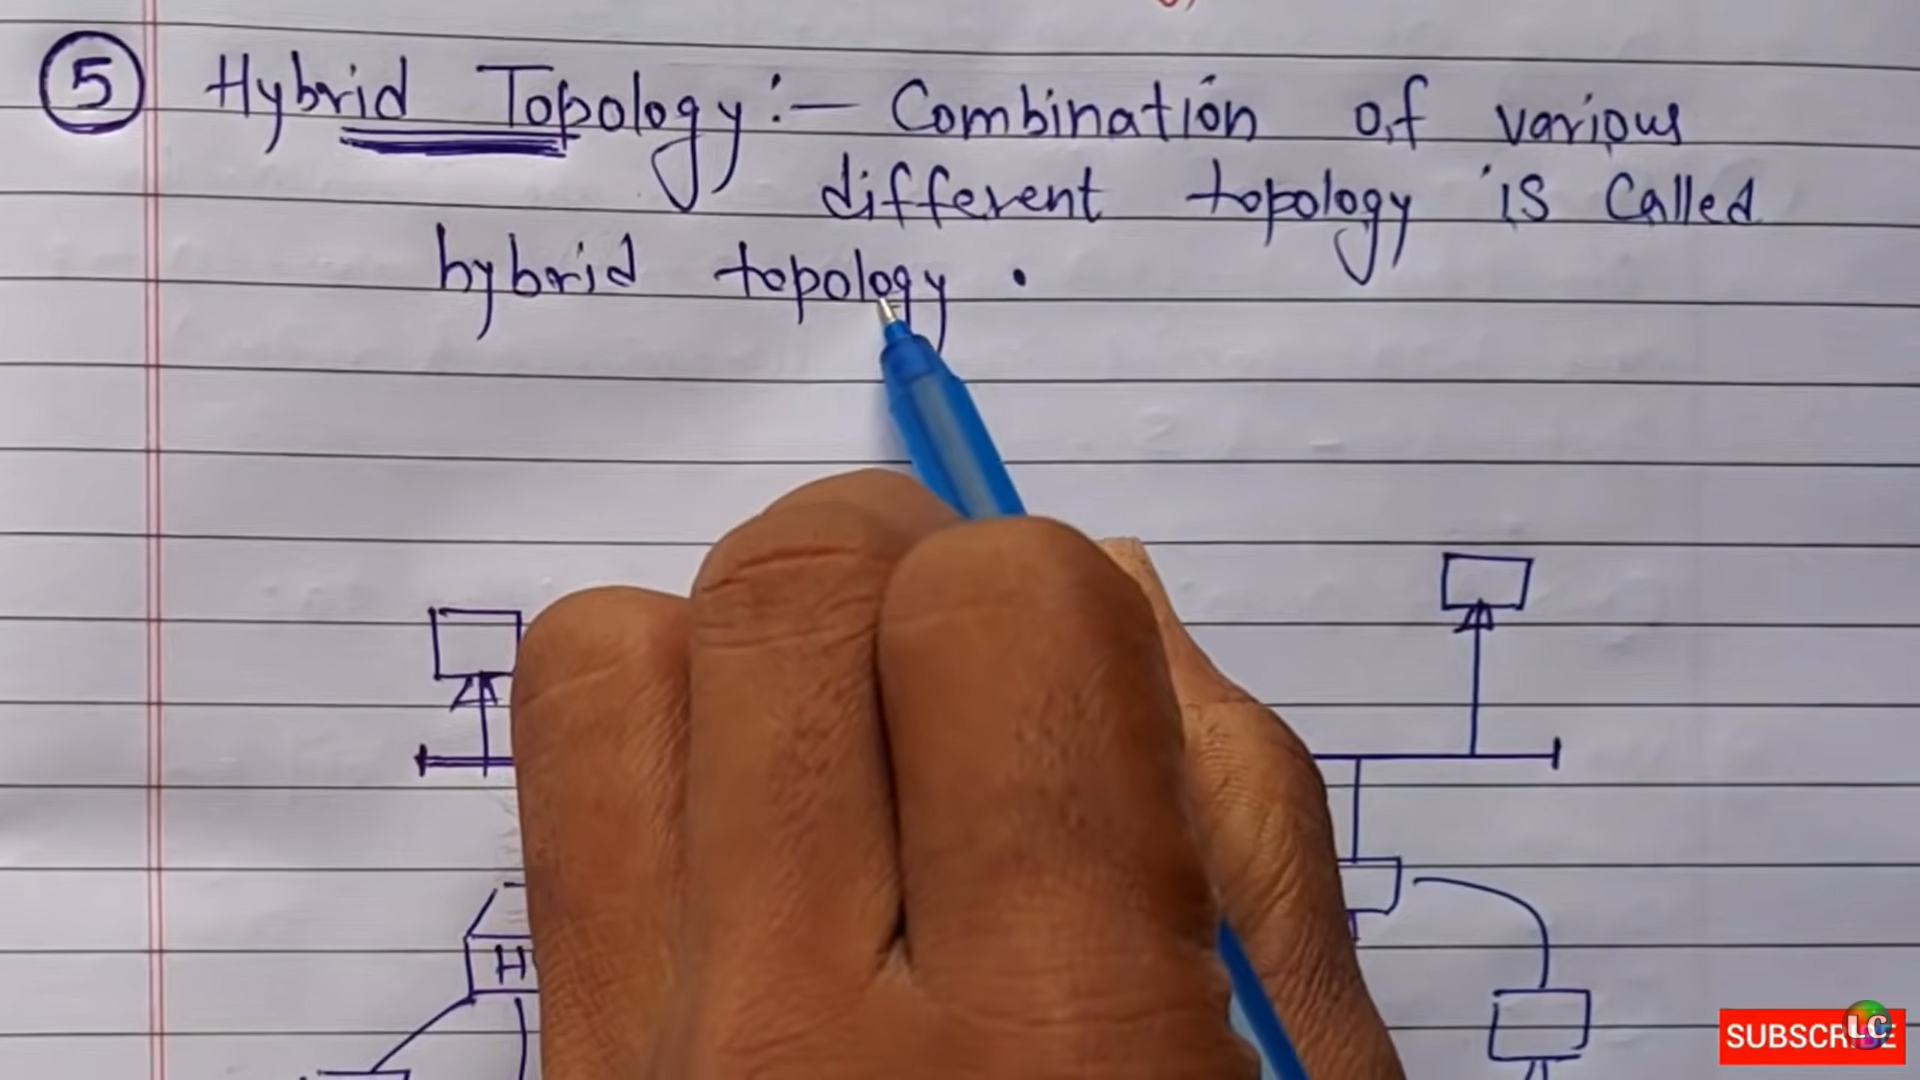 5 Hybrid Topology :- Combination of various
different topology is called
hybrid topology .
H
SUBSCRIBE
LC